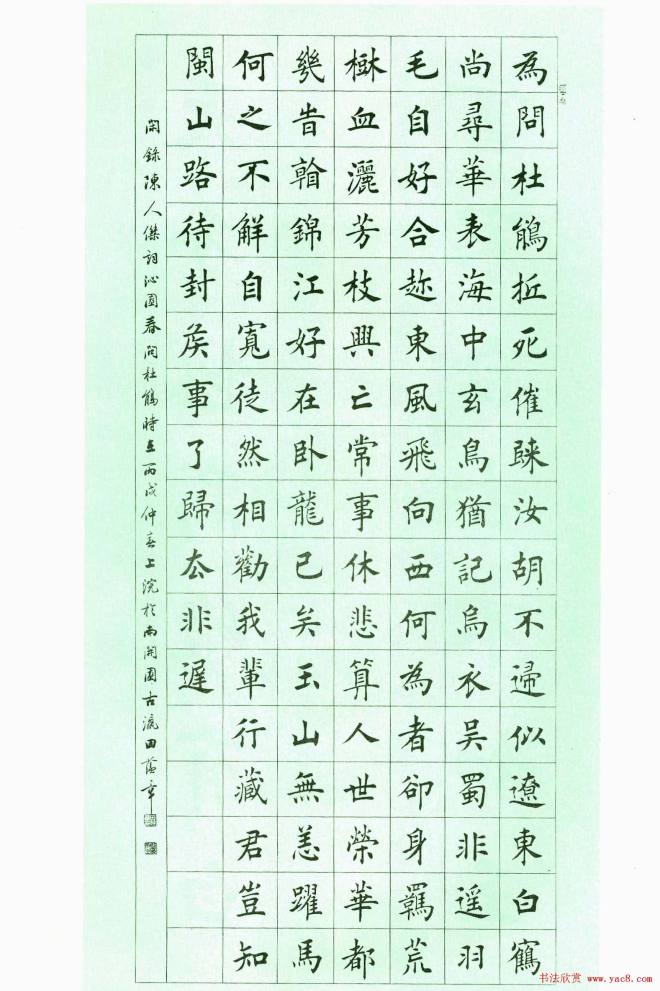 為問杜鵑抵死催歸汝胡不歸似遼東白鶴
尚尋華表海中玄鳥猶記烏衣吴蜀非遥羽
毛自好合趂東風飛向西何為者卻身羈荒
樹血灑芳枝興亡常事休悲算人世榮華都
幾昔觀錦江好在卧龍已矣玉山無恙躍馬
何之不解自寬徒然相勸我輩行藏君豈知
閩山路待封侯事了歸去非遲
陳人傑詞沁園春問杜鵑時在丙戌仲春上浣於南開園古瀛田蘊章
书法欣赏 www.yac8.com